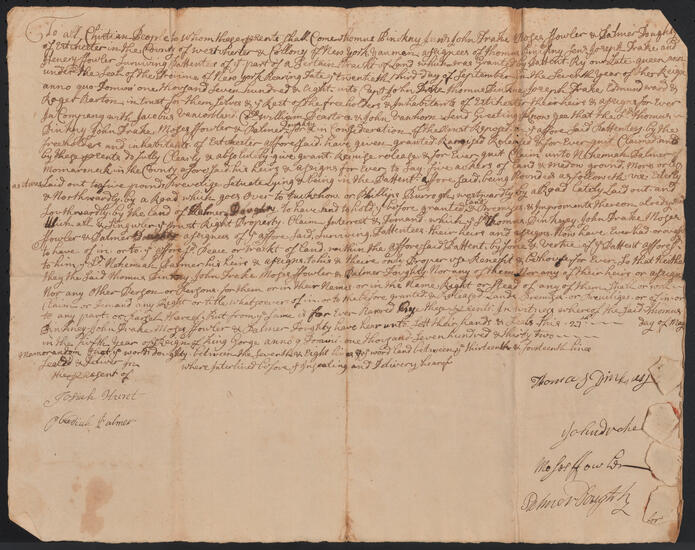 To all Christian People to Whom these presents Shall Come Thomas Pinkney Junr John Drake Moses ffowler & Palmer Doughty
of Eastchester in the County of westchester & Collony of New york yauman assignees of Thomas Pinkney Senr Joseph Drake and
Henery ffowler Surviving Pattentees of part of a Sertain Tract of Land which was Granted by Pattent By our Late queen ann
under the Seal of the Province of New york Bearing Date twentieth third Day of September in the Seventh year of her Reign
anno quo Domini one thousand Seven hundred & Eight unto Capt John Drake Thomas Pinkney Joseph Drake Edmund ward &
Roger Barton in trust for them Selves & Rest of the freeholders & Inhabitants of Eastchester their heirs & assigns for Ever
In Company with Jacobus Vancortland William & John Send Greeting Know yee that the Sd Thomas
Pinkny John Drake Moses ffowler & Palmer Doughty for & in Consideration of the Trust Reposed in afore Said Pattentees by the
freeholders and inhabitants of Eastchester affore Said, have given granted Remised Released & for Ever quit Claimed and
by these presents do fully Clearly & absolutly give grant Remise release & for Ever quit Claim unto Nehemiah Palmer
of Momaroneck in the County affore Said his heirs & assigns for Ever fifty five ackers of land & medow ground More or less
as it was Laid out to five pounds Previlige Situate Lying & being in the Pattent affore Said, being Bounded as followeth viz Esterly
& Northwardly by a Road which goes Over to or Phillips Burrough westwardly by a Road Lately Laid out and
Southwardly by the land of Palmer Doughty to have and to hold before granted Land & Premyses & Improments thereon already
With all & Singuler Right Property Claim Interest & Demand which Sd Thomas Pinkney John Drake Moses
ffowler & Palmer Doughty assignees of affore Said Surviving Pattentees their heirs and assigns Now have Ever had or ought
to have of in or to affore Sd Peace or Tract of land within the affore Said Pattent by force & Vertue of Pattent affore Sd
to him Sd Nehemiah Palmer his heirs & assigns to his & theire only Proper use Benefit & Behouse for Ever So that Neither
they the Said Thomas Pinkny John Drake Moses ffowler & Palmer Doughty Nor any of them Nor any of their heirs or assigns
Nor any Other Person or Persons for them or in their Names or in the Name Right or Stead of any of them Shall or will
Claim or Demand any Right or title whatsoever of in or to the before granted & Released Land & Premyses or Previliges or of in or
to any part or Parsel thereof But from Same is for Ever Barred By these presents In witness where of the Said Thomas
Pinkney John Drake Moses ffowler & Palmer Doughty have here unto Sett their hands & Seals this 23 day of May
in the fifth year of Reign of King Gorge anno Domini one thousand Seven hundred & thirty two
Memorandum that words Doughty between the Seventh & Eight lines & word land between thirteenth & fourteenth lines
where interlined before Insealing and Delivery hereof
Sealed & Deliver in
the present of
Josiah Hunt
Obediah Palmer
Thomas Pinkney
John drake
Moses ffowler
Palmer Doughty